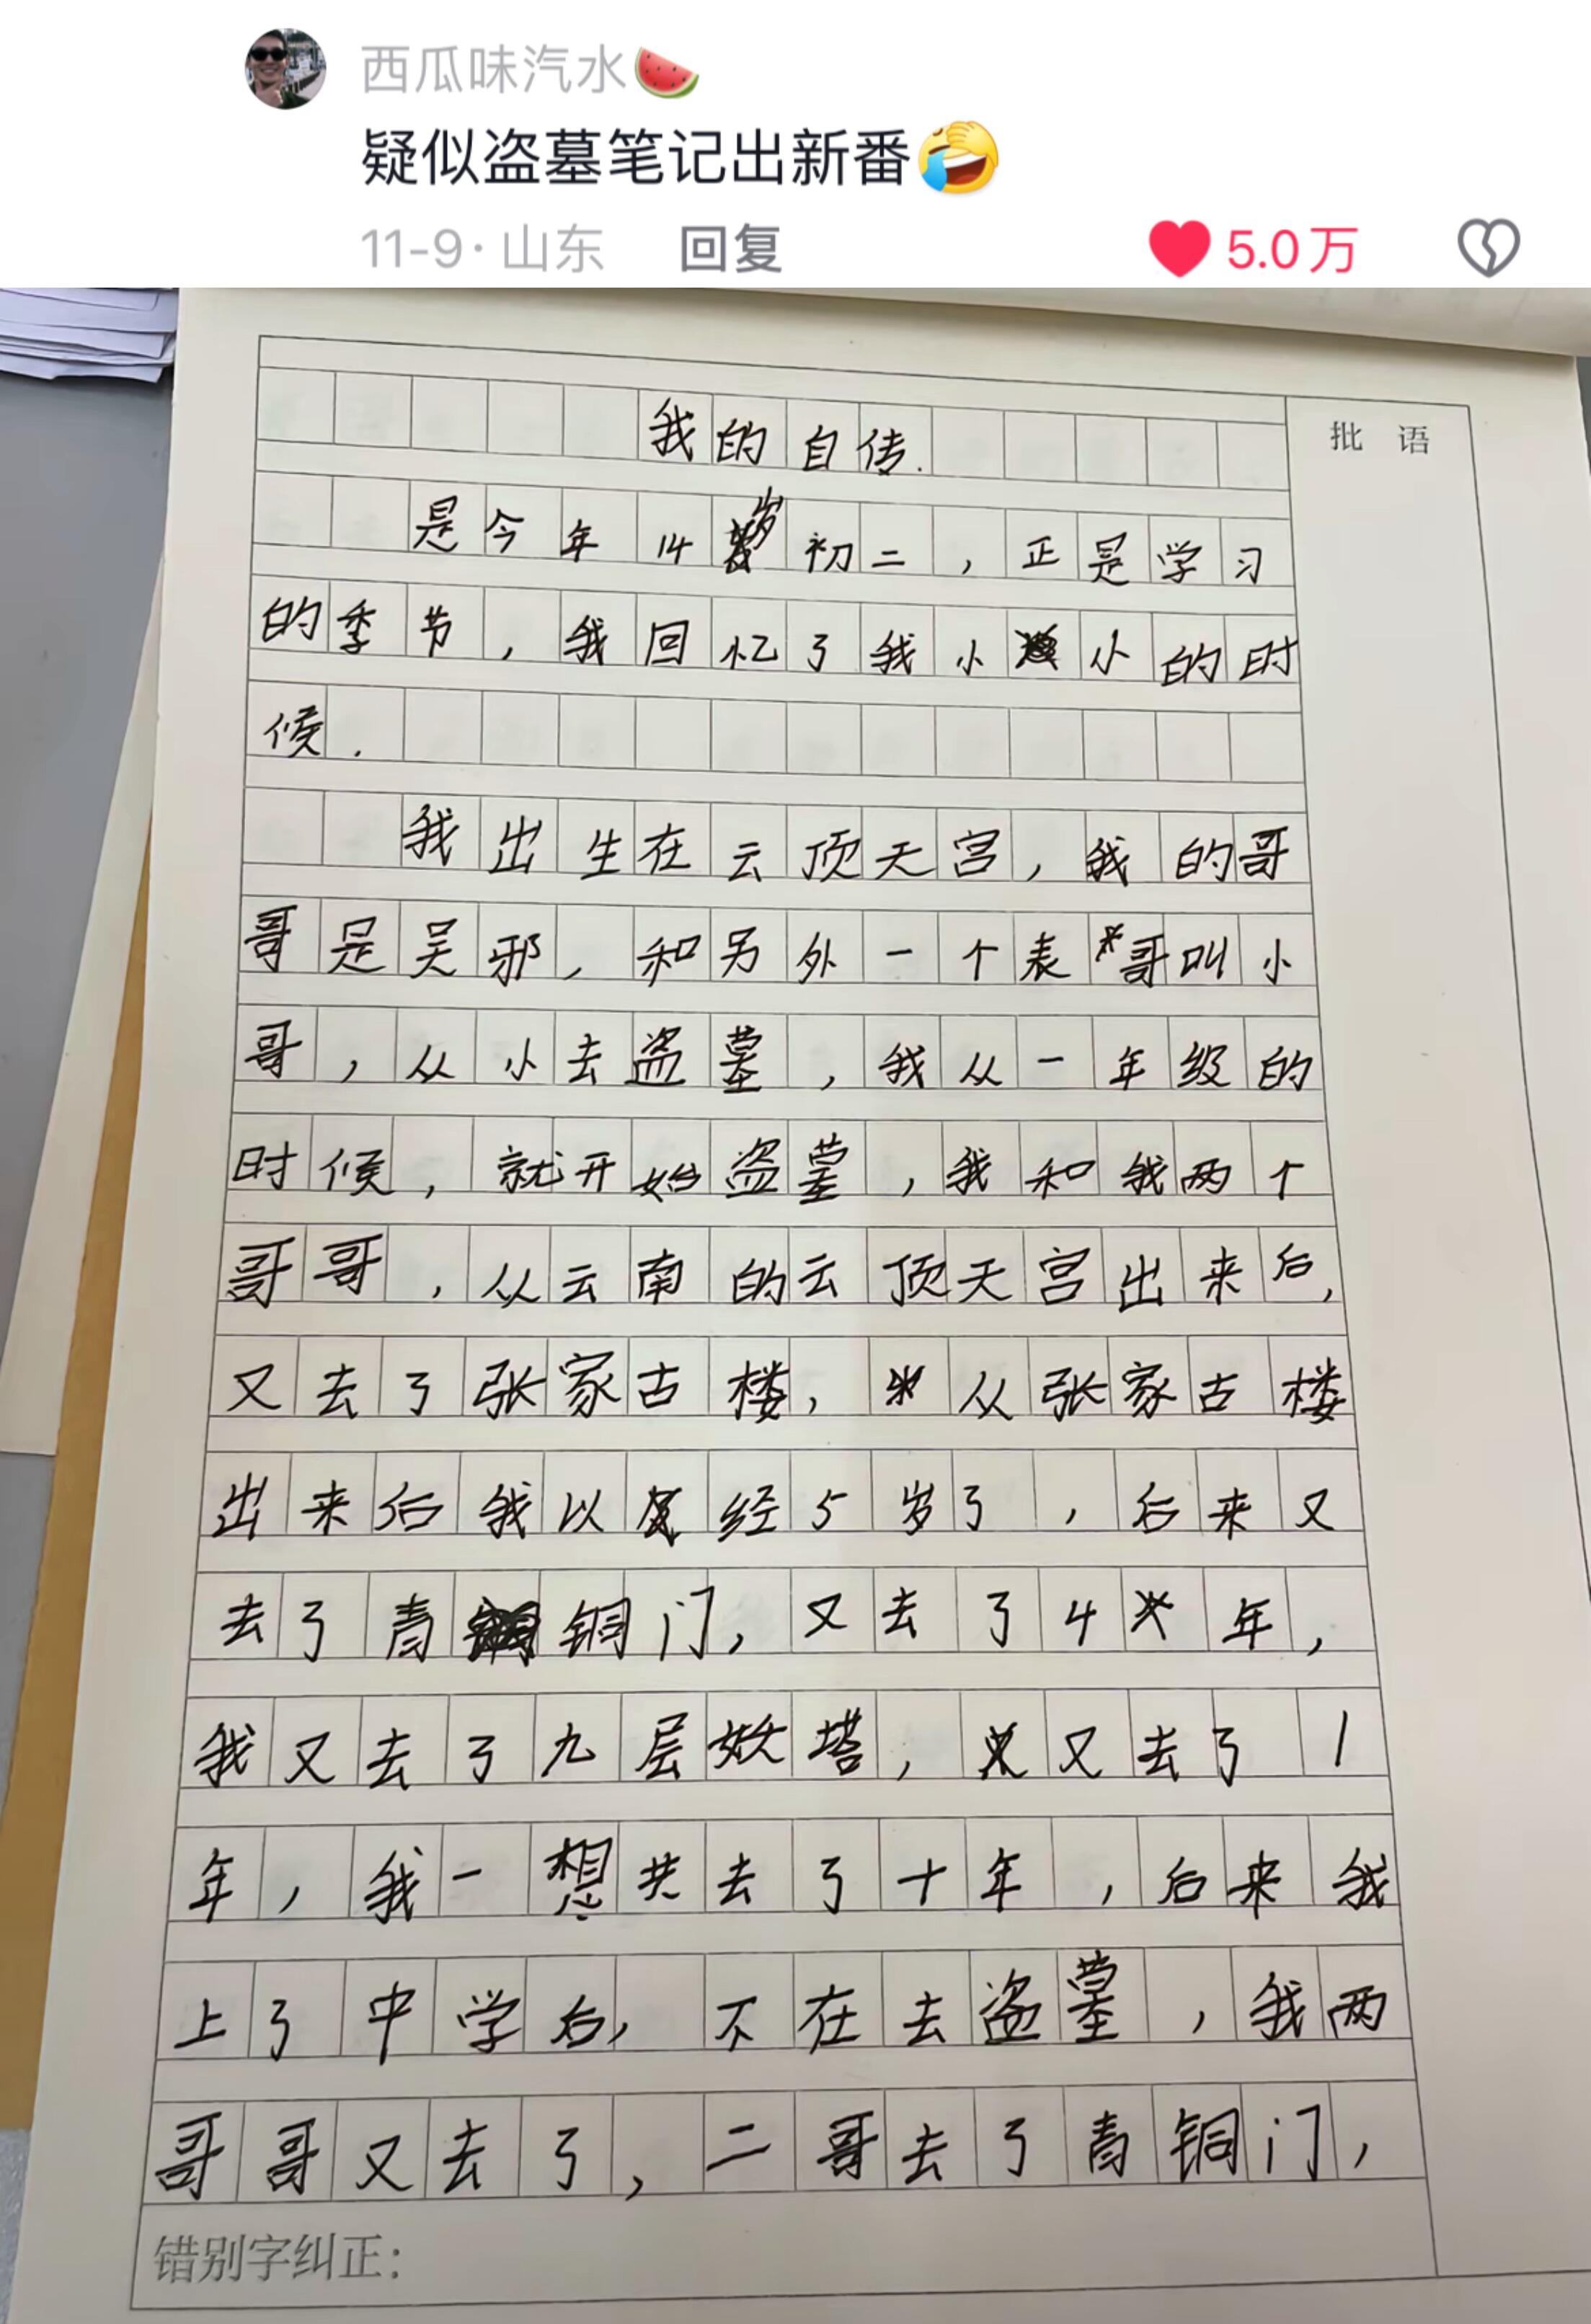 西瓜味汽水🍉
疑似盗墓笔记出新番🤣
11-9·山东 回复 5.0万
批语
我的自传.
是今年14岁初二，正是学习
的季节，我回忆了我小小的时
候.
我出生在云顶天宫，我的哥
哥是吴邪，和另外一个表哥叫小
哥，从小去盗墓，我从一年级的
时候，就开始盗墓，我和我两个
哥哥，从云南的云顶天宫出来后，
又去了张家古楼，从张家古楼
出来后我以经5岁了，后来又
去了青铜门，又去了4年，
我又去了九层妖塔，又去了1
年，我一想共去了十年，后来我
上了中学后，不在去盗墓，我两
哥哥又去了，二哥去了青铜门，
错别字纠正：